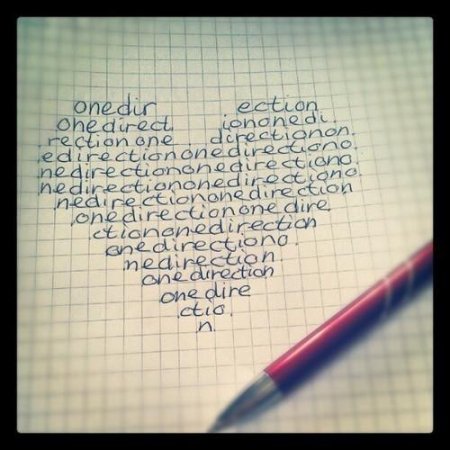 onedir ection
onedirect iononedi
rectionone directionon
edirectiononedirectiono
nedirectiononedirectiono
nedirectiononedirectiono
nedirectiononedirection
onedirectiononedire
ctiononedirection
onedirectiono
nedirection
onedirection
onedire
ctio
n